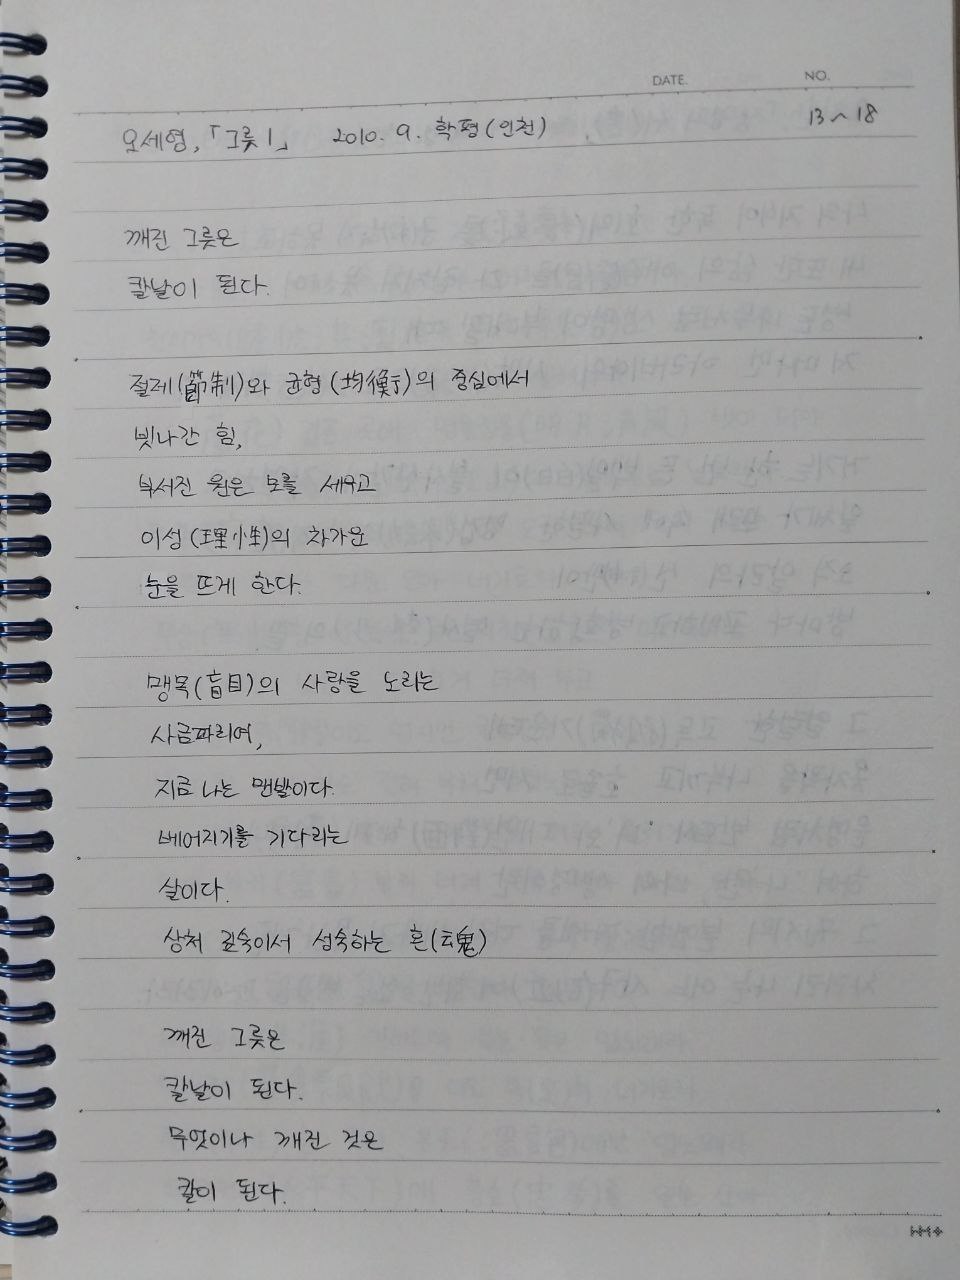 DATE.
NO.
오세영, 「그릇 1」 2010. 9. 학평(인천) 13~18
깨진 그릇은
칼날이 된다.
절제(節制)와 균형(均衡)의 중심에서
빗나간 힘,
부서진 원은 모를 세우고
이성(理性)의 차가운
눈을 뜨게 한다.
맹목(盲目)의 사랑을 노리는
사금파리여,
지금 나는 맨발이다.
베어지기를 기다리는
살이다.
상처 깊숙이서 성숙하는 혼(魂)
깨진 그릇은
칼날이 된다.
무엇이나 깨진 것은
칼이 된다.